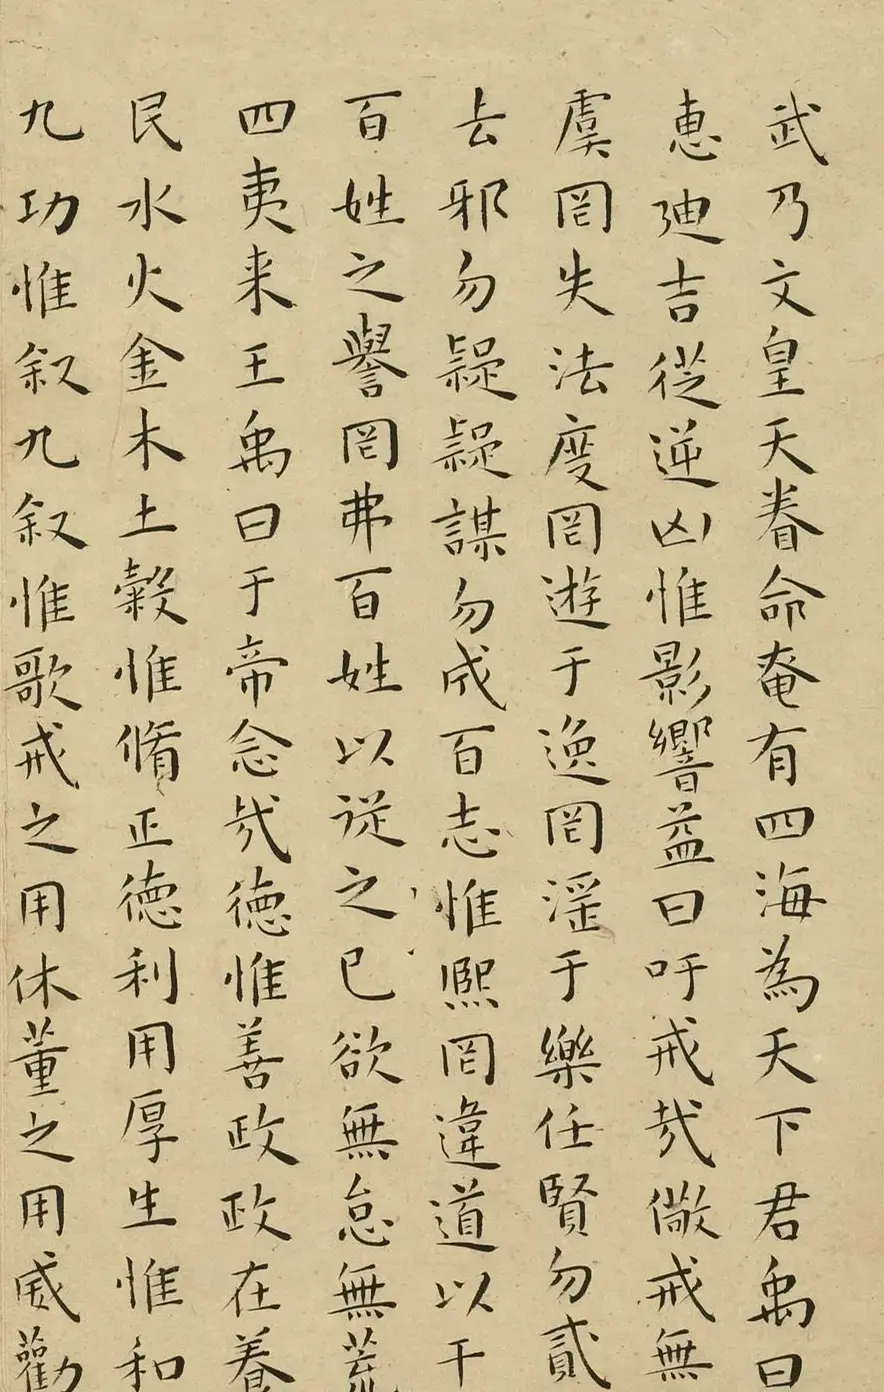 武乃文皇天眷命奄有四海為天下君禹曰
惠迪吉從逆凶惟影響益曰吁戒哉儆戒無
虞罔失法度罔遊于逸罔滛于樂任賢勿貳
去邪勿疑疑謀勿成百志惟熙罔違道以干
百姓之譽罔弗百姓以從之已欲無怠無荒
四夷来王禹曰于帝念哉德惟善政政在養
民水火金木土穀惟脩正德利用厚生惟和
九功惟叙九叙惟歌戒之用休董之用威勸